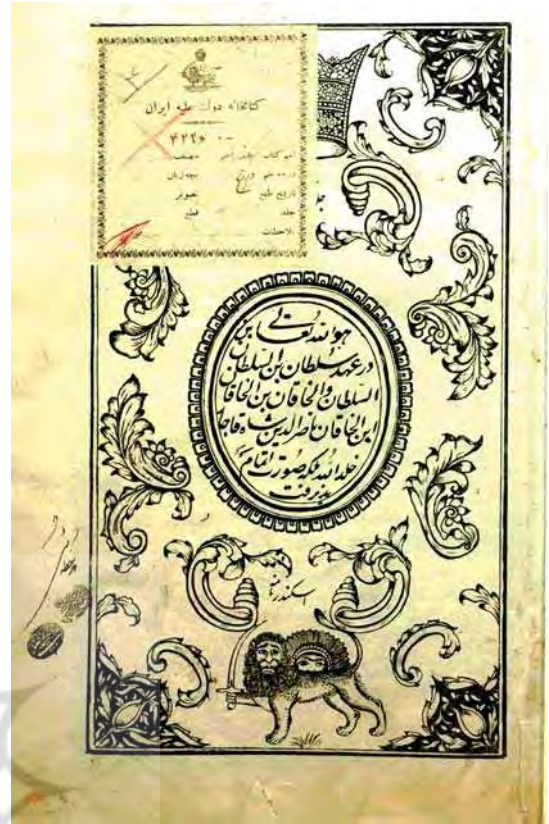 کتابخانه دولت علیه ایران
۴۲۲۶
مصنف
تاریخ طبع
تصویر
جلد
قطع
ملاحظات
هو الله تعالی
در عهد سلطان بن السلطان
السلطان و الخاقان بن الخاقان
ابن الخاقان ناصرالدین شاه قاجار
خلد الله ملکه صورت اتمام
پذیرفت
اسکندرنامه